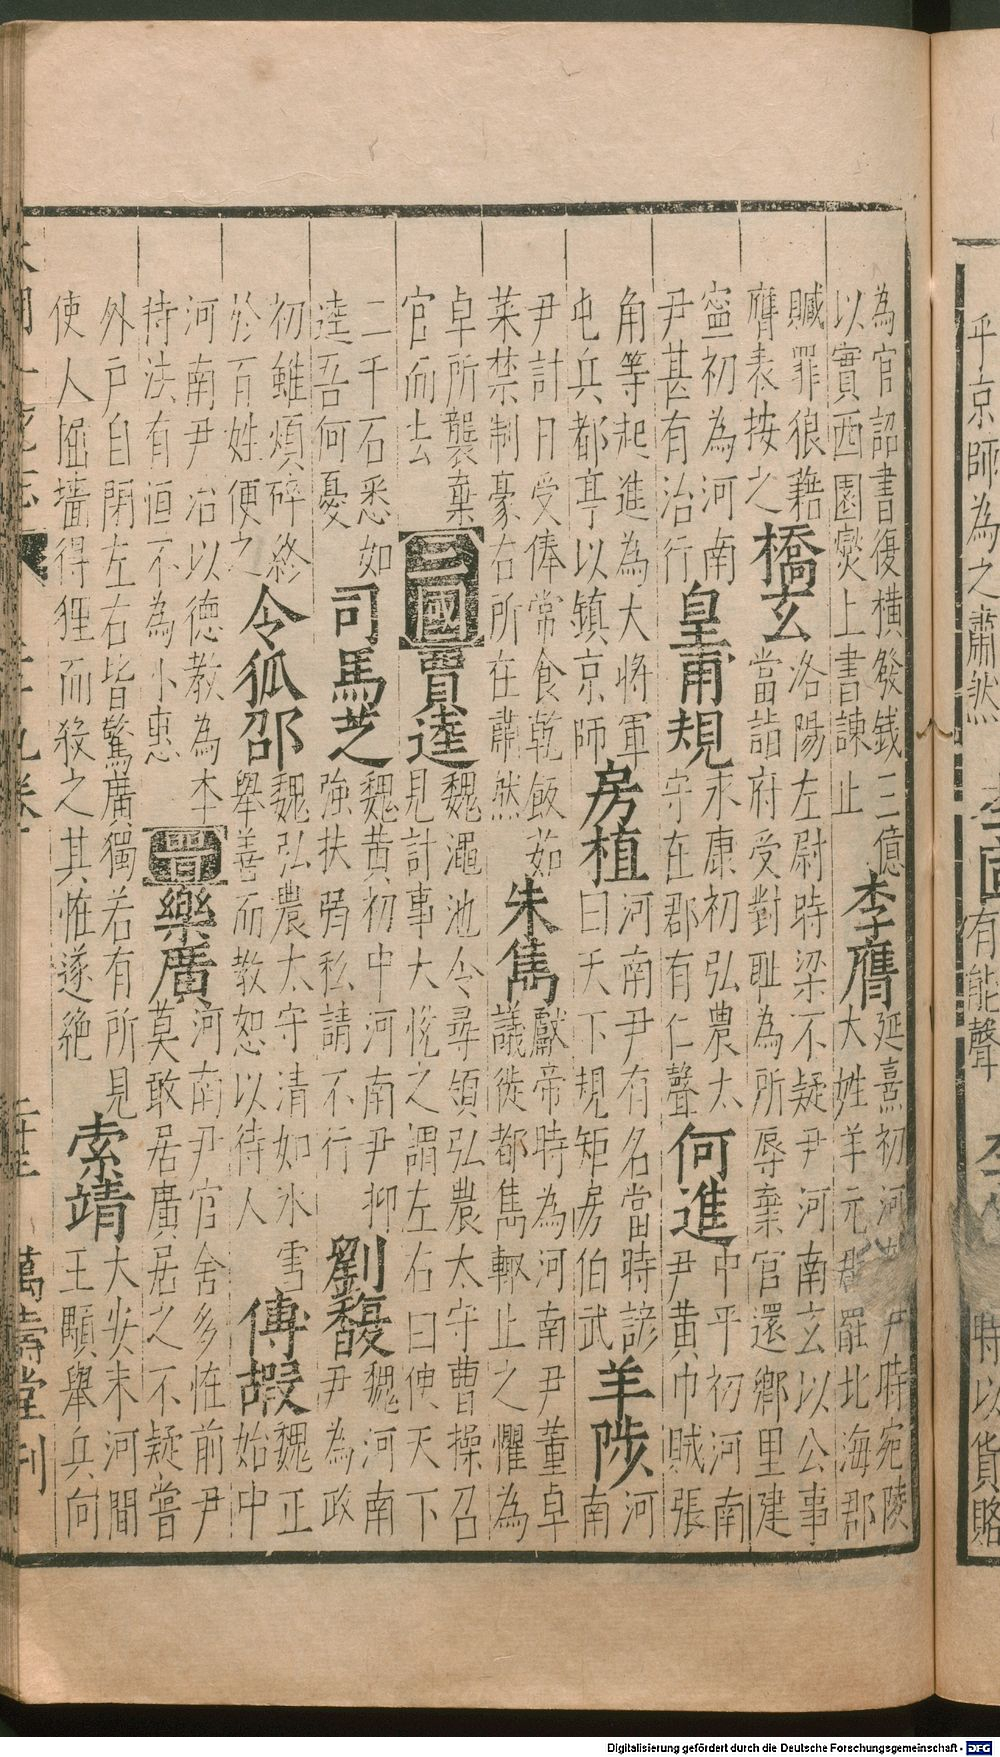 乎京師為之肅然
有能聲
時以貨賂
為官詔書復横發錢三億
以實西園爕上書諫止
李膺
延熹初河尹時宛陵
大姓羊元群罷北海郡
贓罪狼藉
膺表按之
橋玄
洛陽左尉時梁不疑尹河南玄以公事
當詣府受對耻為所辱棄官還鄉里建
寧初為河南
尹甚有治行
皇甫規
永康初弘農太
守在郡有仁聲
何進
中平初河南
尹黄巾賊張
角等起進為大將軍
屯兵都亭以鎮京師
房植
河南尹有名當時諺
曰天下規矩房伯武
羊陟
河
南
尹計日受俸常食乾飯茹
菜禁制豪右所在肅然
朱雋
獻帝時為河南尹董卓
議徙都雋輒止之懼為
卓所襲棄
官而去
三國
賈逵
魏澠池令尋領弘農太守曹操召
見計事大悦之謂左右曰使天下
二千石悉如
逵吾何憂
司馬芝
魏黄初中河南尹抑
強扶弱私請不行
劉馥
魏河南
尹為政
初雖煩碎終
於百姓便之
令狐邵
魏弘農太守清如氷雪
舉善而教恕以待人
傅嘏
魏正
始中
河南尹治以德教為本
持法有恒不為小惠
晉
樂廣
河南尹官舍多怪前尹
莫敢居廣居之不疑嘗
外戸自閉左右皆驚廣獨若有所見
使人掘墻得狸而殺之其怪遂絶
索靖
大安末河間
王顒舉兵向
萬壽堂刊
Digitalisierung gefördert durch die Deutsche Forschungsgemeinschaft - DFG